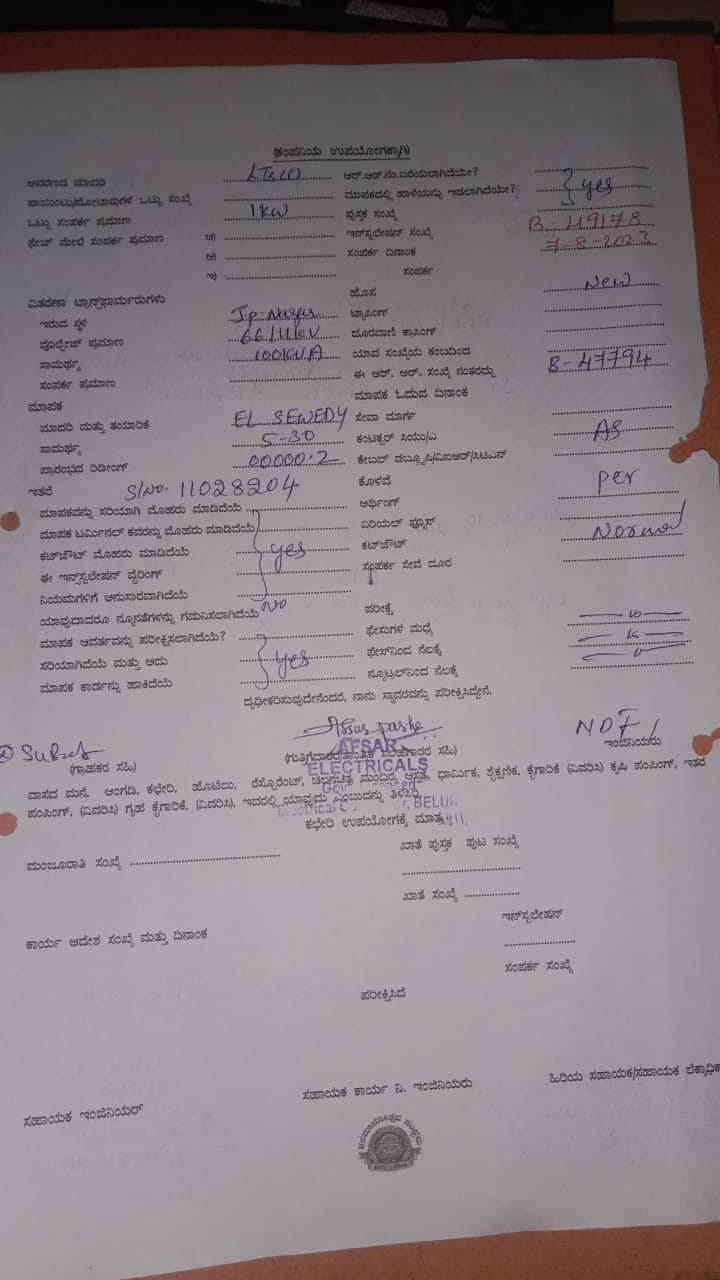 (ಕಂಪನಿಯ ಉಪಯೋಗಕ್ಕಾಗಿ)
ಆವರಣದ ಮಾದರಿ LT3(i) ಆರ್.ಆರ್.ನಂ.ಬರೆಯಲಾಗಿದೆಯೇ?
ಪಾಯಿಂಟು/ಮೋಟಾರುಗಳ ಒಟ್ಟು ಸಂಖ್ಯೆ ಮಾಪಕದಲ್ಲಿ ಹಾಳೆಯನ್ನು ಇಡಲಾಗಿದೆಯೇ? } yes
ಒಟ್ಟು ಸಂಪರ್ಕ ಪ್ರಮಾಣ 1kw ಪುಸ್ತಕ ಸಂಖ್ಯೆ
ಫೇಜ್ ಮೇಲೆ ಸಂಪರ್ಕ ಪ್ರಮಾಣ ಅ) ಇನ್‌ಸ್ಟಲೇಷನ್ ಸಂಖ್ಯೆ B-49178
ಆ) ಸಂಪರ್ಕ ದಿನಾಂಕ 7-8-2023
ಇ) ಸಂಪರ್ಕ
ವಿತರಣಾ ಟ್ರಾನ್ಸ್‌ಫಾರ್ಮರುಗಳು ಹೊಸ New
ಇರುವ ಸ್ಥಳ J.p. Nagar ಟ್ಯಾಪಿಂಗ್
ವೊಲ್ಟೇಜ್ ಪ್ರಮಾಣ 66/11kV ದೂರವಾಣಿ ಕ್ರಾಸಿಂಗ್
ಸಾಮರ್ಥ್ಯ 100KVA ಯಾವ ಸಂಖ್ಯೆಯ ಕಂಬದಿಂದ
ಸಂಪರ್ಕ ಪ್ರಮಾಣ ಈ ಆರ್. ಆರ್. ಸಂಖ್ಯೆ ನಂತರದ್ದು B-47794
ಮಾಪಕ ಮಾಪಕ ಓದುವ ದಿನಾಂಕ
ಮಾದರಿ ಮತ್ತು ತಯಾರಿಕೆ EL SEWEDY ಸೇವಾ ಮಾರ್ಗ
ಸಾಮರ್ಥ್ಯ 5-30 ಕಂಟಕ್ಟರ್ ಸಿಯು/ಎ As
ಪ್ರಾರಂಭದ ರಿಡೀಂಗ್ 00000.2 ಕೇಬಲ್ ಡಬ್ಲ್ಯೂಪಿ/ವಿಐಆರ್/ಸಿಟಿಎನ್
ಇತರೆ S/No. 11028204 ಕೊಳವೆ per
ಮಾಪಕವನ್ನು ಸರಿಯಾಗಿ ಮೊಹರು ಮಾಡಿದೆಯೆ ಅರ್ಥಿಂಗ್
ಮಾಪಕ ಟರ್ಮಿನಲ್ ಕವರನ್ನು ಮೊಹರು ಮಾಡಿದೆಯೆ ಏರಿಯಲ್ ಫ್ಯೂಸ್ Normal
ಕಟ್‌ಔಟ್ ಮೊಹರು ಮಾಡಿದೆಯೆ } yes ಕಟ್‌ಔಟ್
ಈ ಇನ್ಸ್‌ಸ್ಟಲೇಷನ್ ವೈರಿಂಗ್ ಸಂಪರ್ಕ ಸೇವೆ ದೂರ
ನಿಯಮಗಳಿಗೆ ಅನುಸಾರವಾಗಿದೆಯೆ
ಯಾವುದಾದರೂ ನ್ಯೂನತೆಗಳನ್ನು ಗಮನಿಸಲಾಗಿದೆಯೆ No ಪರೀಕ್ಷೆ
ಮಾಪಕ ಆವರ್ತವನ್ನು ಪರೀಕ್ಷಿಸಲಾಗಿದೆಯೆ? ಫೇಸುಗಳ ಮಧ್ಯೆ
ಸರಿಯಾಗಿದೆಯೆ ಮತ್ತು ಅದು } yes ಫೇಸ್‌ನಿಂದ ನೆಲಕ್ಕೆ
ಮಾಪಕ ಕಾರ್ಡನ್ನು ಹಾಕಿದೆಯೆ ನ್ಯೂಟ್ರಲ್‌ನಿಂದ ನೆಲಕ್ಕೆ
ದೃಢೀಕರಿಸುವುದೇನೆಂದರೆ, ನಾನು ಸ್ಥಾವರವನ್ನು ಪರೀಕ್ಷಿಸಿದ್ದೇನೆ.
(ಗ್ರಾಹಕರ ಸಹಿ) (ಗುತ್ತಿಗೆದಾರರ/ತಾಂತ್ರಿಕ ಸಲಹಗಾರರ ಸಹಿ) ಇಂಜಿನಿಯರು
AFSAR
ELECTRICALS
ವಾಸದ ಮನೆ, ಅಂಗಡಿ, ಕಛೇರಿ, ಹೊಟೆಲು, ರೆಸ್ಟೋರೆಂಟ್, ಚಲನಚಿತ್ರ ಮಂದಿರ, ಆಸ್ಪತ್ರೆ, ಧಾರ್ಮಿಕ, ಶೈಕ್ಷಣಿಕ, ಕೈಗಾರಿಕೆ (ವಿವರಿಸಿ) ಕೃಷಿ ಪಂಪಿಂಗ್, ಇತರ
ಪಂಪಿಂಗ್, (ವಿವರಿಸಿ) ಗೃಹ ಕೈಗಾರಿಕೆ, (ವಿವರಿಸಿ), ಇದರಲ್ಲಿ ಯಾವುದು ಎಂಬುದನ್ನು ತಿಳಿಸಿರಿ
ಕಛೇರಿ ಉಪಯೋಗಕ್ಕೆ ಮಾತ್ರ
ಮಂಜೂರಾತಿ ಸಂಖ್ಯೆ ಖಾತೆ ಪುಸ್ತಕ ಪುಟ ಸಂಖ್ಯೆ
ಖಾತೆ ಸಂಖ್ಯೆ
ಕಾರ್ಯ ಆದೇಶ ಸಂಖ್ಯೆ ಮತ್ತು ದಿನಾಂಕ ಇನ್‌ಸ್ಟಲೇಷನ್
ಸಂಪರ್ಕ ಸಂಖ್ಯೆ
ಪರೀಕ್ಷಿಸಿದೆ
ಸಹಾಯಕ ಇಂಜಿನಿಯರ್ ಸಹಾಯಕ ಕಾರ್ಯ ನಿ. ಇಂಜಿನಿಯರು ಹಿರಿಯ ಸಹಾಯಕ/ಸಹಾಯಕ ಲೆಕ್ಕಾಧಿಕ